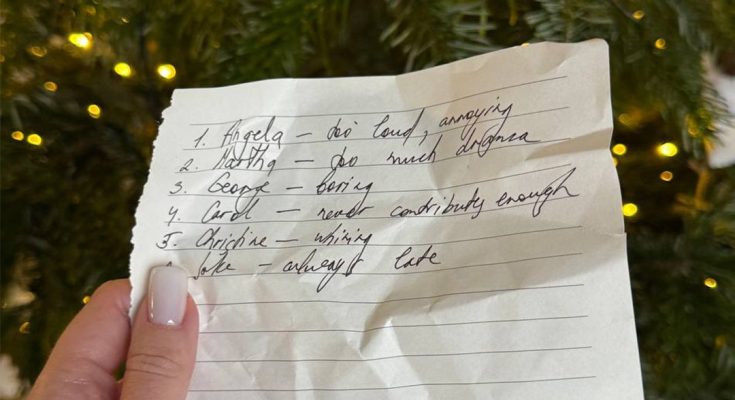 1. Angela – too loud, annoying
2. Martha – too much drama
3. George – boring
4. Carol – never contributes enough
5. Christine – whining
– always late